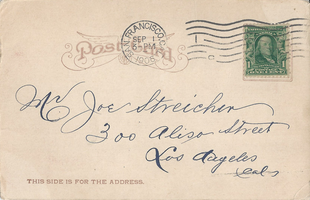 SAN FRANCISCO, CAL.
SEP 1
5-PM
1905
Post Card
1
Mr Joe Streicher
300 Aliso Street
Los Angeles
Cal
THIS SIDE IS FOR THE ADDRESS.